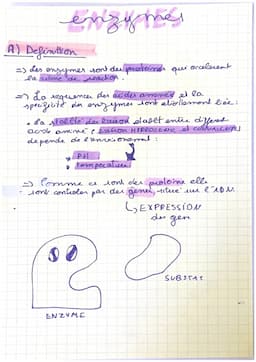 ENZYMES
enzymes
A) Definition
=> Les enzymes sont des proteines qui accelerent
la vitesse de reaction.
=> La sequence des acides aminés et la
specificité des enzymes sont etroitement liée.
• la stabilité des liaison etablit entre differents
acide aminé (liaison HYDROGENE et covalence)
depende de l'environnement :
* PH
* temperature
=> Comme ce sont des proteine elle
sont controler par des genes, situe sur l'ADN
↳ EXPRESSION
des gen
SUBSTAT
ENZYME